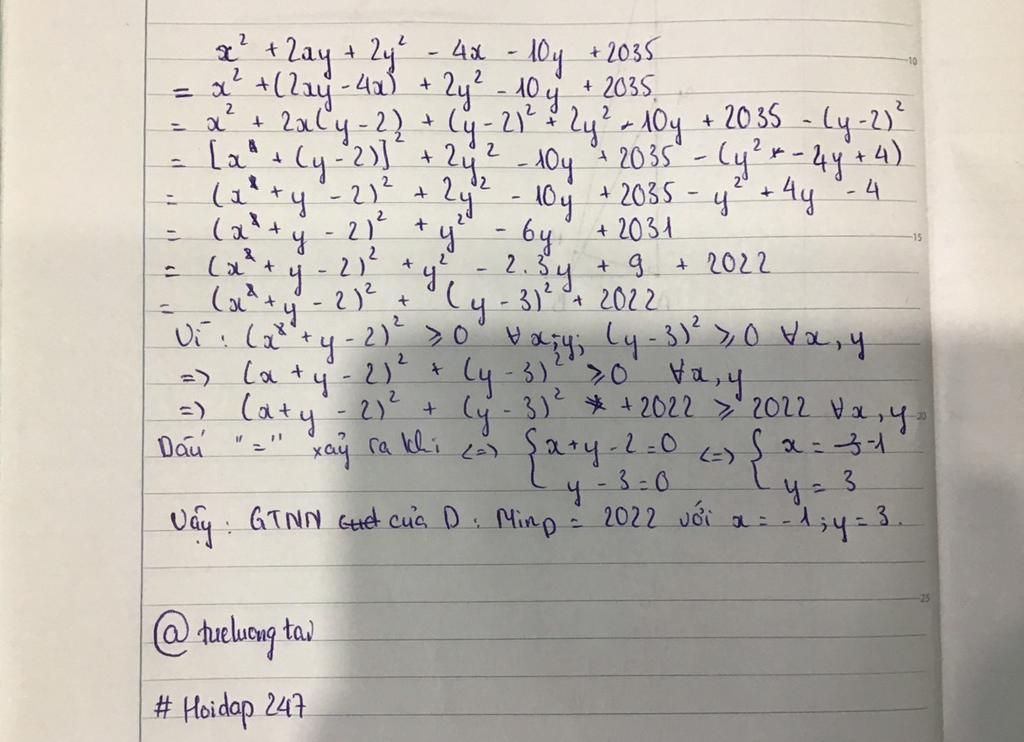 x² + 2xy + 2y² - 4x - 10y + 2035
= x² + (2xy - 4x) + 2y² - 10y + 2035
= x² + 2x(y - 2) + (y - 2)² + 2y² - 10y + 2035 - (y - 2)²
= [x + (y - 2)]² + 2y² - 10y + 2035 - (y² - 4y + 4)
= (x + y - 2)² + 2y² - 10y + 2035 - y² + 4y - 4
= (x + y - 2)² + y² - 6y + 2031
= (x + y - 2)² + y² - 2.3y + 9 + 2022
= (x + y - 2)² + (y - 3)² + 2022
Vì : (x + y - 2)² ≥ 0 ∀x;y; (y - 3)² ≥ 0 ∀x, y
=> (x + y - 2)² + (y - 3)² ≥ 0 ∀x, y
=> (x + y - 2)² + (y - 3)² + 2022 ≥ 2022 ∀x, y
Dấu "=" xảy ra khi <=> { x + y - 2 = 0 <=> { x = -1
y - 3 = 0 y = 3
Vậy : GTNN của D : Min_D = 2022 với x = -1 ; y = 3.
@ tueluongtav
# Hoidap 247
10
15
20
25